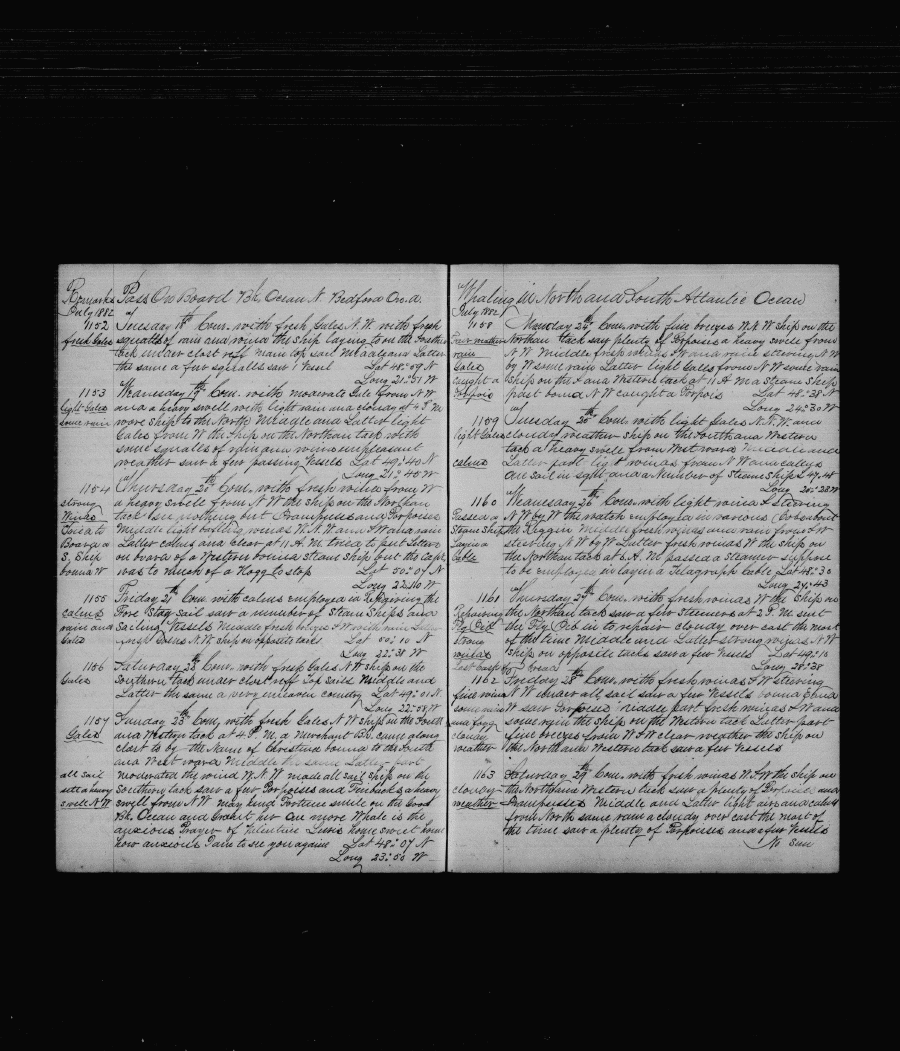 Remarks Pass On Board Bk, Ocean N. Bedford On. a.
July 1882
1152 Tuesday 18th Com. with fresh Gales N.W. with fresh
fresh Gales squalls of rain and wind the ship laying to on the
tack under close reff main top sail Middle and Latter
the same a few squalls saw 1 Vessel Lat 48:09 N
Long 21:51 W
1153 Wednesday 19th Com. with moderate Gale from N.W
light Gales and a heavy swell with light rain and cloudy at 4 P.M
some rain wore ship to the North Middle and Latter light
Gales from W the Ship on the Northan tack with
some squalls of rain and wind unpleasant
weather saw a few passing Vessels Lat 49:40 N
Long 21:45 W
1154 Thursday 20th Com. with fresh wind from W
strong a heavy swell from N W the ship on the Northan
Winds tack See nothing but Grampuses and Porpoises
Tried to Middle light baffling winds W.N.W and W and rain
Board a Latter calms and clear at 11 A.M. tried to put Letters
S. Ship on board of a Western bound Steam Ship but the Capt
bound W was to much of a Hogg to stop Lat 50:07 N
Long 22:10 W
1155 Friday 21st Com. with calms Employed in Repairing the
calms Fore Stay Sail saw a number of Steam Ships and
rain and Sailing Vessels Middle fresh breezes S W with rain Latter
Gales fresh Gales N.W. Ship on opposite tacks Lat 50:10 N
Long 22:31 W
1156 Saturday 22d Com. with fresh Gales N W ship on the
Gales Southern tack under close reff Top Sails Middle and
Latter the same a very uneaven country Lat 49:01 N.
Long 22:58 W
1157 Sunday 23d Com. with fresh Gales N.W ship on the South
Gales and Western tack at 4 P.M. a Merchant Bk. came along
close to by the Name of Christina bound to the South
and West ward Middle the same Latter part
all sail moderated the wind W.N.W. made all sail ship on the
sett a heavy Southern tack saw a few Porpoises and Finbacks a heavy
swell N.W swell from N W may kind Fortune smile on the Good
Bk. Ocean and Grant her One more Whale is the
anxious Prayer of Valentine Lewis home sweet home
how anxious I am to see you again Lat 48:07 N
Long 23:50 W
Whaling in North and South Atlantic Ocean
July 1882
1158 Monday 24th Com. with fine breezes W.N.W ship on the
Fair weather Northan tack saw plenty of Porpoises a heavy swell from
rain N W Middle fresh winds W and rain stering N.W
Gales by W some rain Latter light Gales from N W some rain
caught a Ship on the S and Western tack at 11 A M a steam ship
Porpois past bound N W caught a Porpois Lat 48:38 N
Long 24:30 W
1159 Tuesday 25th Com. with light Gales N.N.W and
light Gales cloudy weather ship on the South and Western
tack a heavy swell from West ward Middle and
calms Latter part light winds from N W and calms
one sail in sight and a Number of Steam ships 49,45
Long 25:28 W
1160 Wednesday 26th Com. with light winds stering
Passed a N W by W the watch employed in various Jobs about
Steam Ship the Riggin Middle fresh winds and rain from S W
Laying a stering N.W by W Latter fresh winds W the ship on
Cable the Northan tack at 6 A.M passed a steamer Suppose
to be employed in laying a Telagraph Cable Lat 48:30
Long 27:43
1161 Thursday 27th Com. with fresh winds W the Ship on
Repairing the Northan tack saw a few Steemers at 2 P.M sent
Fly Gib the Fly Gib in to repair cloudy over cast the most
strong of the time Middle and Latter strong winds N.W
winds Ship on opposite tacks saw a few Vessels Lat 49:10
Last cask of bread Long 28:38
1162 Friday 28th Com. with fresh winds S W Stering
fine wind N.W under all sail saw a few Vessels bound E and
some mist W saw Porpoises Middle part fresh winds S W and
and fogg some rain the ship on the Western tack Latter part
cloudy fine breezes from W S W clear weather the ship on
weather the North and Western tack saw a few Vessels
1163 Saturday 29th Com. with fresh winds W.S.W the ship on
cloudy the North and Western tack saw a plenty of Porpoises and
weather Grampusses Middle and Latter light airs and calms
from North some rain a cloudy over cast the most of
the time saw a plenty of Porpoises and a few Vessels
No Sun